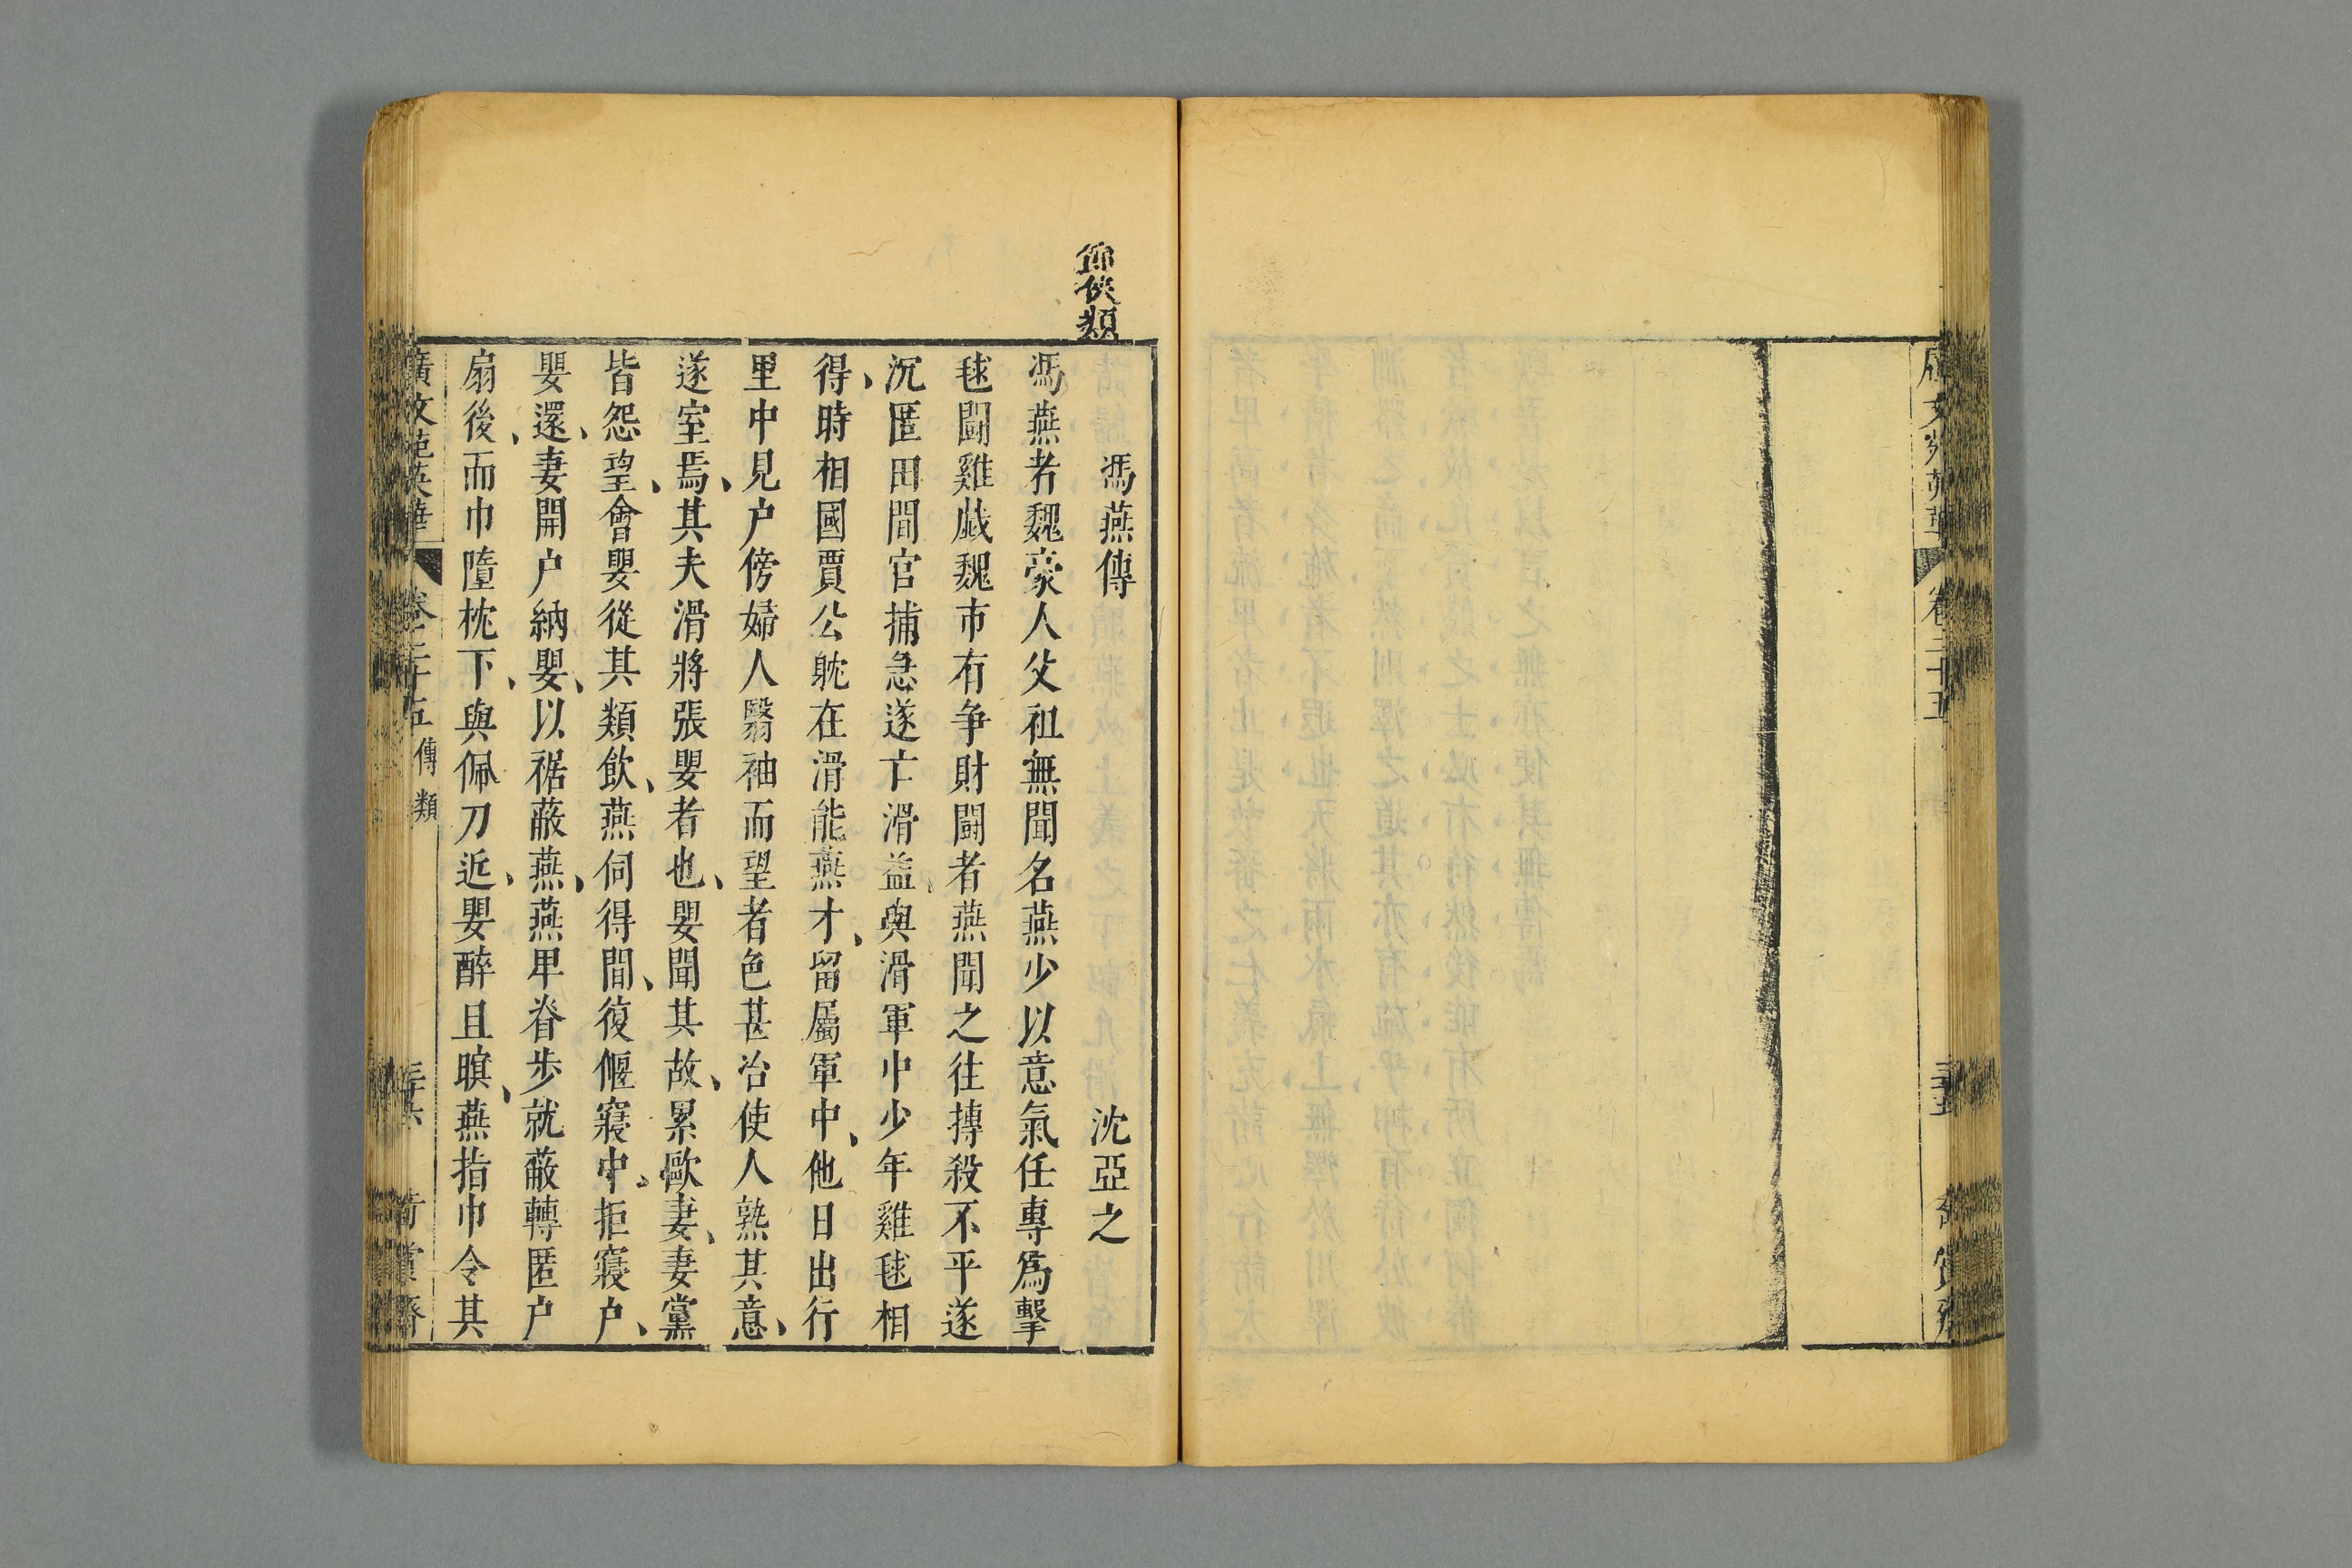 廣文苑英華
卷二十五
三十五
奇賞齋
節俠類
馮燕傳
沈亞之
馮燕者魏豪人父祖無聞名燕少以意氣任專爲擊
毬鬬雞戱魏市有爭財鬬者燕聞之往搏殺不平遂
沉匿田間官捕急遂亡滑益與滑軍中少年雞毬相
得時相國賈公躭在滑能燕才留屬軍中他日出行
里中見户傍婦人翳袖而望者色甚冶使人熟其意
遂室焉其夫滑將張嬰者也嬰聞其故累歐妻妻黨
皆怨望會嬰從其類飲燕伺得間復偃寢中拒寢户
嬰還妻開户納嬰以裾蔽燕燕卑脊步就蔽轉匿户
扇後而巾墮枕下與佩刀近嬰醉且瞑燕指巾令其
廣文苑英華
卷二十五
傳類
三十六
奇賞齋